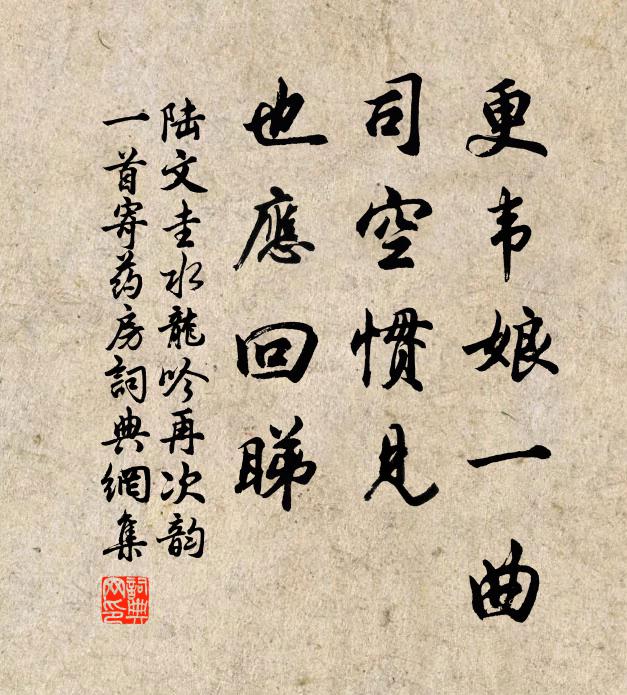 更韦娘一曲
司空惯见
也應回睇
陆文圭水龍吟再次韵
一首寄药房詞典網集
詞典網印